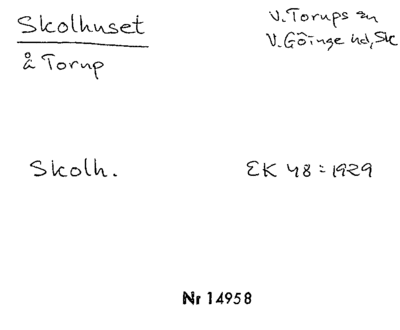 Skolhuset
å Torup
V. Torups sn
V. Göinge hd, Sk
Skolh.
EK 48 : 1929
Nr 14958